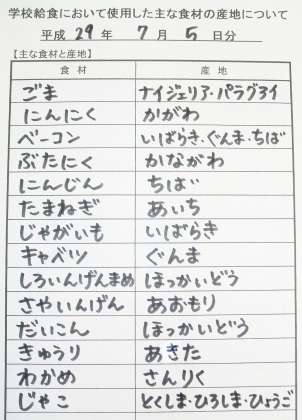 学校給食において使用した主な食材の産地について
平成 29 年 7 月 5 日分
【主な食材と産地】
食材 産地
ごま ナイジェリア・パラグアイ
にんにく かがわ
ベーコン いばらき・ぐんま・ちば
ぶたにく かながわ
にんじん ちば
たまねぎ あいち
じゃがいも いばらき
キャベツ ぐんま
しろいんげんまめ ほっかいどう
さやいんげん あおもり
だいこん ほっかいどう
きゅうり あきた
わかめ さんりく
じゃこ とくしま・ひろしま・ひょうご